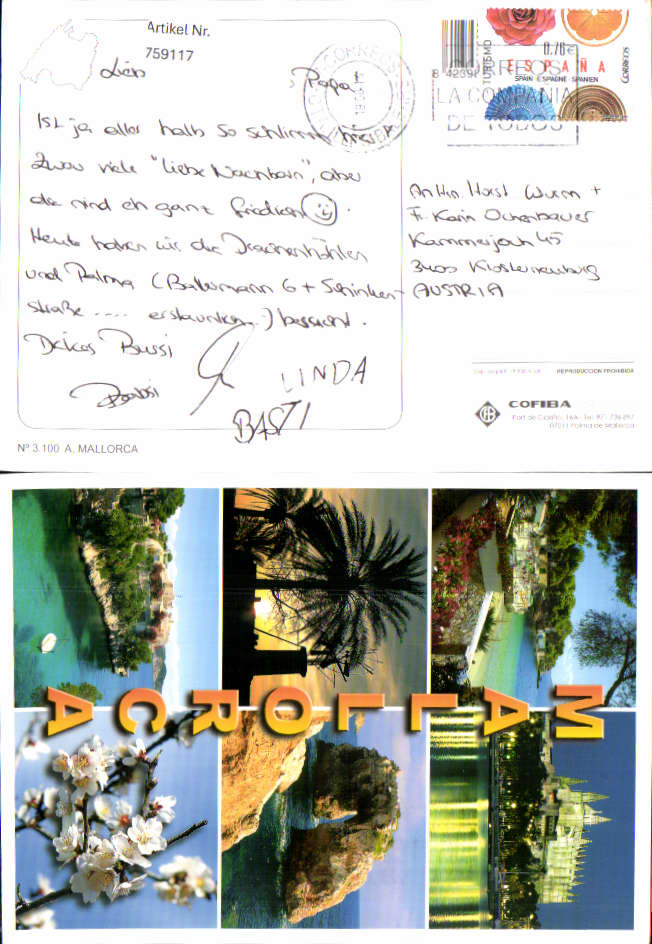 Artikel Nr.
759117
Lieber Papa!
Ist ja alles halb so schlimm hier.
Zwar viele "liebe Nachbarn", aber
die sind eh ganz friedlich.
Heute haben wir die Drachenhöhlen
und Palma (Ballermann 6 + Schinken-
straße .... erstaunlich) besucht.
Dickes Bussi
LINDA
BASTI
Nº 3.100 A. MALLORCA
CORREOS
8 42391
TURISMO
0,78€
ESPAÑA
SPAIN ESPAGNE SPANIEN
CORREOS
CORREOS
LA COMPAÑIA
DE TODOS
An Hrn. Horst Wurm +
Fr. Karin Ochenbauer
Kammerjoch 45
3400 Klosterneuburg
AUSTRIA
REPRODUCCION PROHIBIDA
COFIBA
07011 Palma de Mallorca
MALLORCA